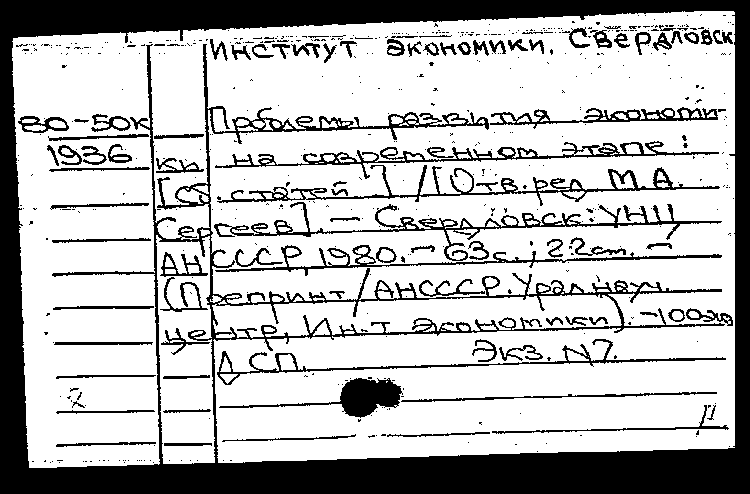 Институт экономики. Свердловск
80-50к Проблемы развития экономи-
1936 ки на современном этапе:
[Сб. статей] / [Отв. ред М.А.
Сергеев]. — Свердловск: УНЦ
АН СССР, 1980. — 63с.; 22см. —
(Препринт / АНСССР. Урал. науч.
центр, Ин-т экономики). -100экз
ДСП. Экз. N7.